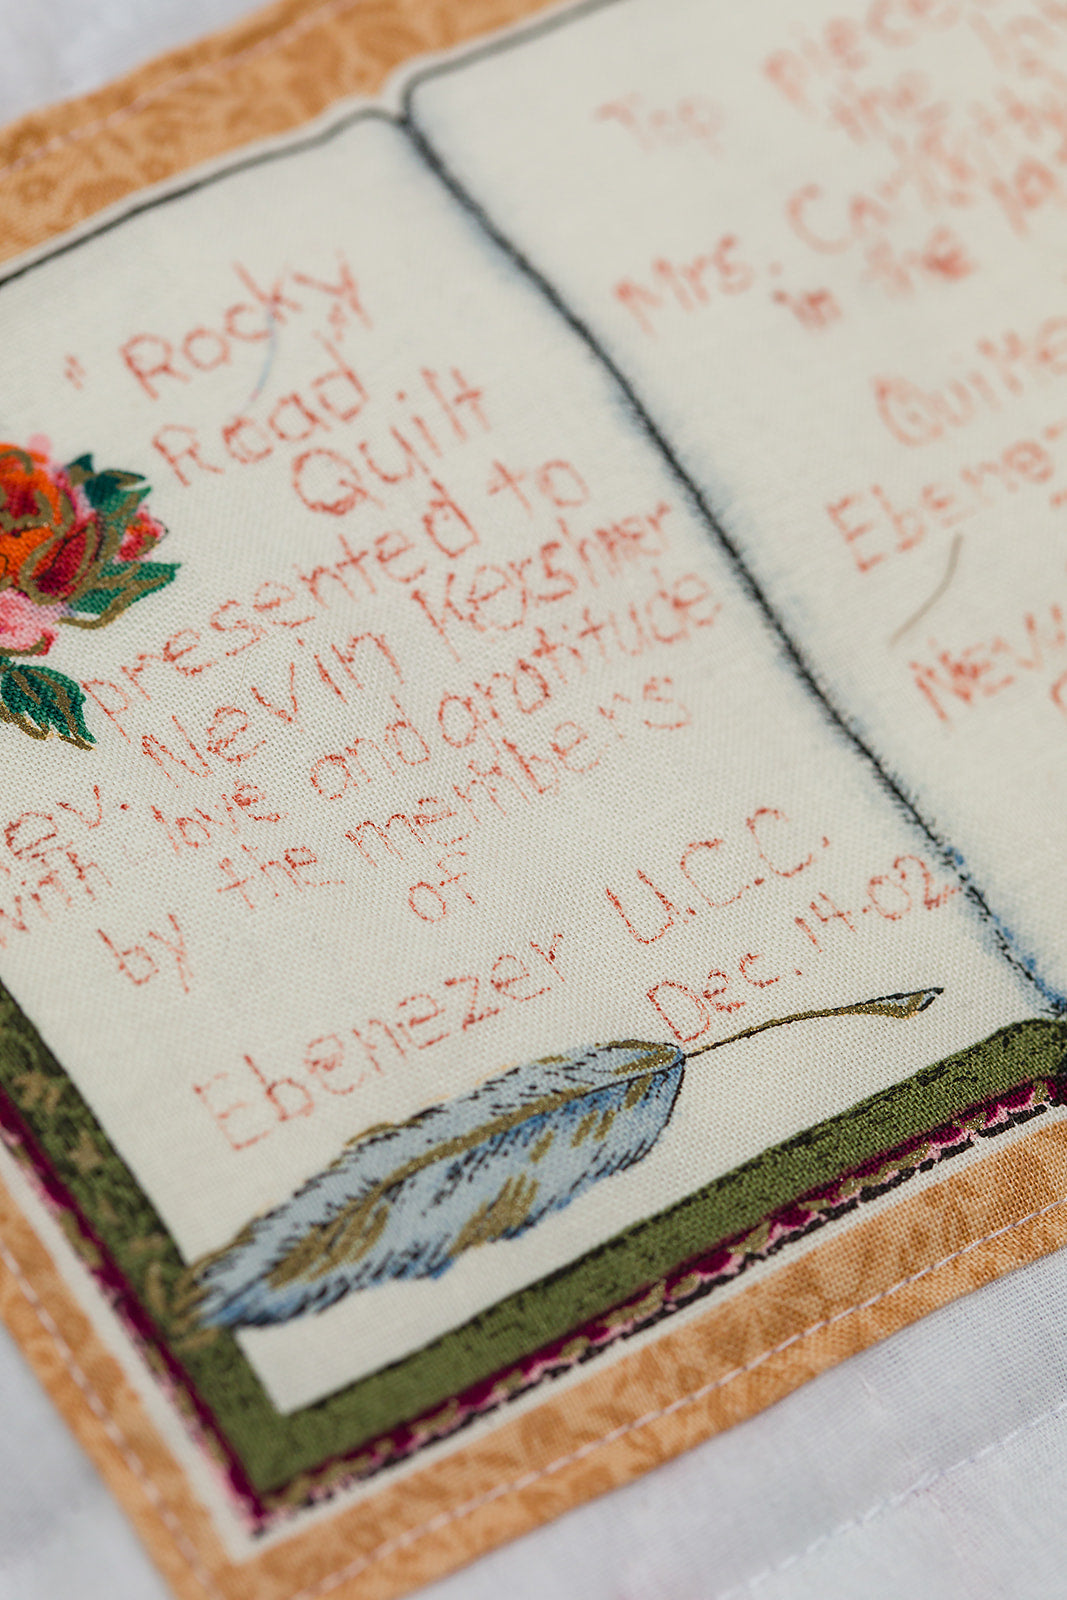 "Rocky
Road"
Quilt
presented to
ev. Nevin Kershner
with love and gratitude
by the members
of
Ebenezer U.C.C.
Dec. 14-02
Top piece
the
Mrs.
in the
Ebenez